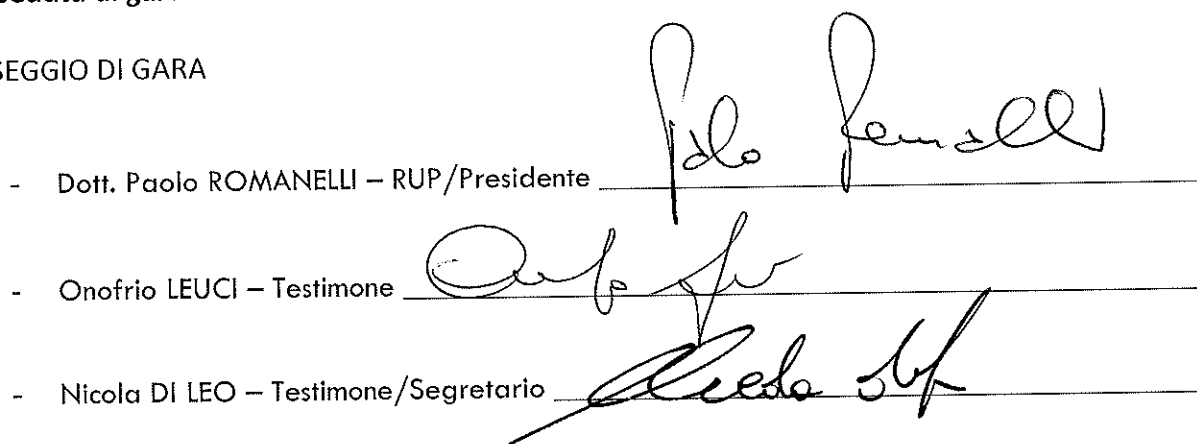 SEGGIO DI GARA
- Dott. Paolo ROMANELLI – RUP/Presidente Paolo Romanelli
- Onofrio LEUCI – Testimone
- Nicola DI LEO – Testimone/Segretario Nicola